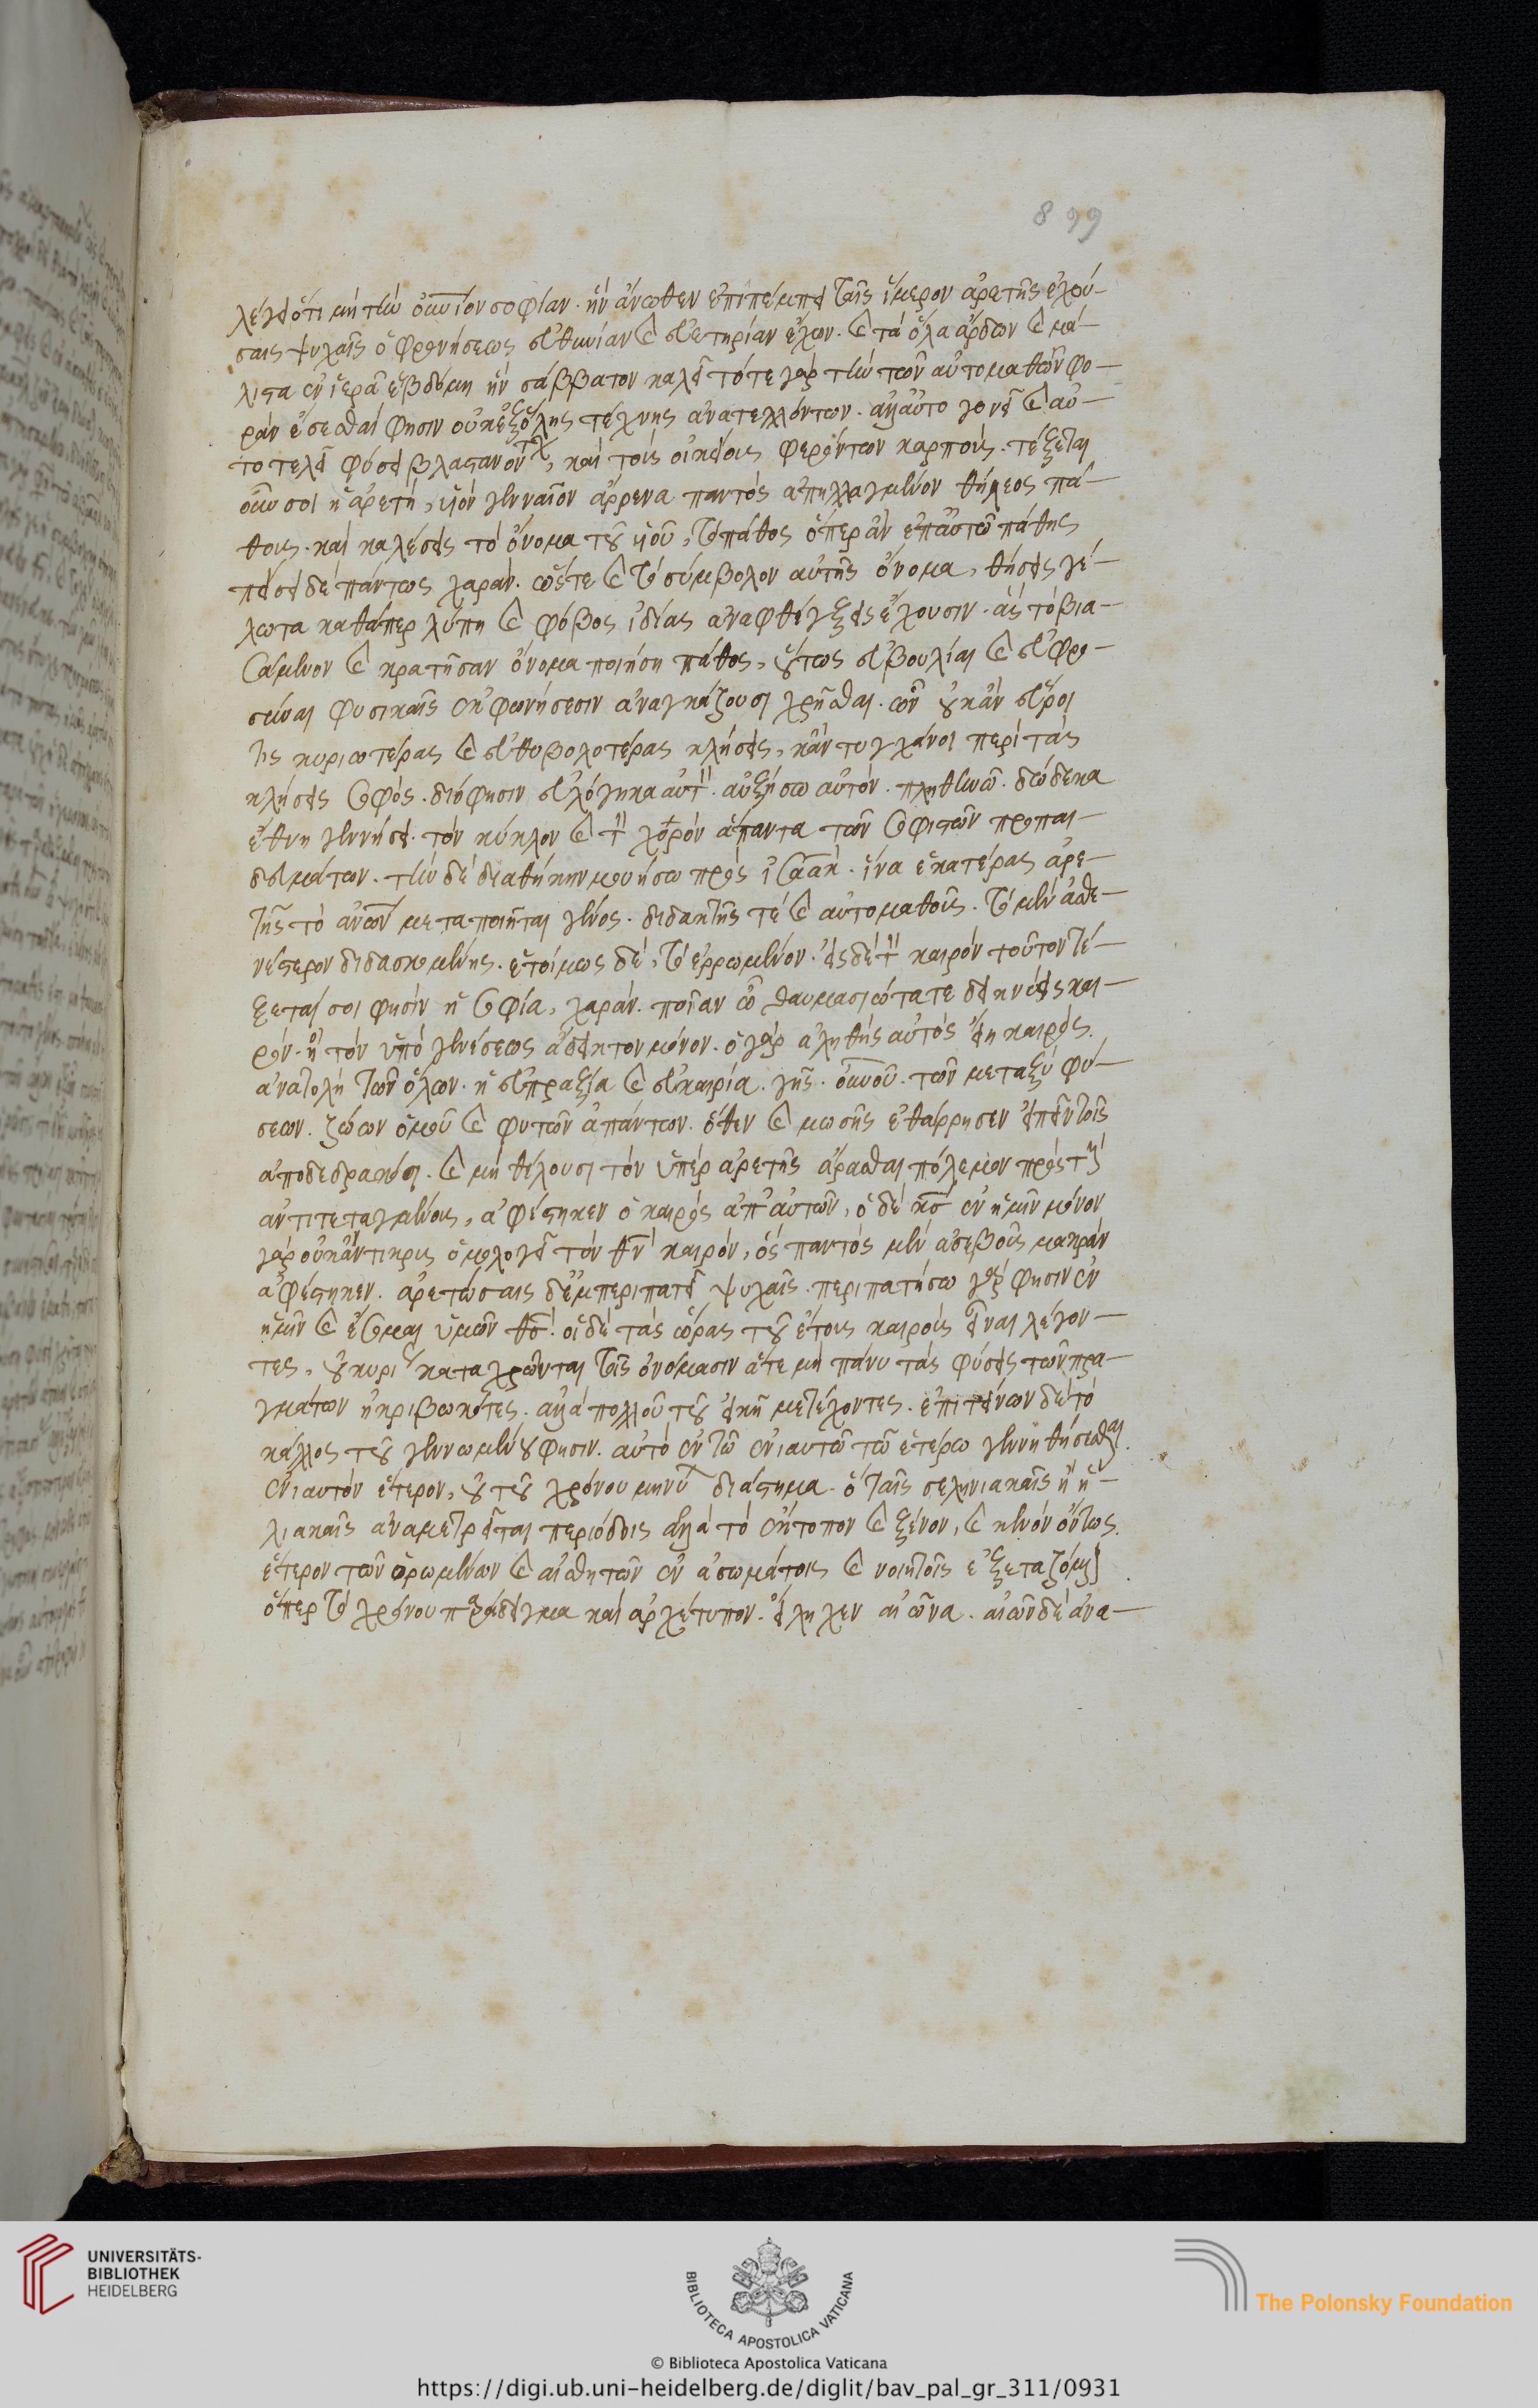 λέγει ὅτι μὴ τὴν οὐνιον σοφίαν. ἣν ἄνωθεν ἐπιπέμπει ταῖς ἵμερον ἀρετῆς ἐχού-
σαις ψυχαῖς ὁ φρονήσεως εὐθηνίαν καὶ εὐετηρίαν ἔχων. καὶ τὰ ὅλα ἄρδων καὶ μά-
λιστα ἐν ἱερᾶ ἑβδόμη ἣν σάββατον καλεῖ τότε γὰρ τὴν τῶν αὐτομαθῶν φο-
ρὰν ἔσεσθαί φησιν οὐκ ἐξ ὅλης τέχνης ἀνατελλόντων. ἀλλ' αὐτογονεῖ καὶ αὐ-
τοτελεῖ φύσει βλαστανόντων, καὶ τοὺς οἰκείους φερόντων καρπούς. τέξεται
οὖν σοι ἡ ἀρετή, υἱὸν γενναῖον ἄρρενα παντὸς ἀπηλλαγμένον θήλεος πά-
θους. καὶ καλέσεις τὸ ὄνομα τοῦ υἱοῦ, τὸ πάθος ὅπερ ἂν ἐπ' αὐτῶ πάθης
πείσει δὲ πάντως χαράν. ὥστε καὶ τὸ σύμβολον αὐτῆς ὄνομα, θήσεις γέ-
λωτα καθάπερ λύπη καὶ φόβος ἰδίας ἀναφθέγξεις ἔχουσιν. ἃς τὸ βια-
σάμενον καὶ κρατῆσαν ὄνομα ποιήση πάθος, οὕτως εὐβουλίαι καὶ εὐφρο-
σύναι φυσικαῖς ἐκφωνήσεσιν ἀναγκάζουσι χρῆσθαι. ὧν οὐκ ἂν εὕροι
τις κυριωτέρας καὶ εὐθυβολοτέρας κλήσεις, κἂν τυγχάνοι περὶ τὰς
κλήσεις σοφός. διό φησιν εὐλόγηκα αὐτόν. αὐξήσω αὐτόν. πληθυνῶ. δώδεκα
ἔθνη γεννήσει. τὸν κύκλον καὶ τὸν χορὸν ἅπαντα τῶν σοφιστῶν προπαι-
δευμάτων. τὴν δὲ διαθήκην μου ἥσω πρὸς ἰσαάκ. ἵνα ἑκατέρας ἀρε-
τῆς τὸ ἀνων μεταποιῆται γένος. διδακτῆς τὲ καὶ αὐτομαθοῦς. τὸ μὲν ἀσθε-
νέστερον διδασκομένης. ἑτοίμως δὲ, τὸ ἐρρωμένον. εἰς δὲ τὸν καιρὸν τοῦτον τέ-
ξεταί σοι φησὶν ἡ σοφία, χαράν. ποῖαν ὦ θαυμασιώτατε δεικνύεις και-
ρόν. ἢ τὸν ὑπὸ γενέσεως ἄδεικτον μόνον. ὁ γὰρ ἀληθὴς αὐτὸς εἴη καιρός.
ἀνατολὴ τῶν ὅλων. ἡ εὐπραξία καὶ εὐκαιρία. γῆς. οὐνοῦ. τῶν μεταξὺ φύ-
σεων. ζώων ὁμοῦ καὶ φυτῶν ἁπάντων. ὅθεν καὶ μωσῆς ἐθάρρησεν εἰπεῖν τοῖς
ἀποδεδρακόσι. καὶ μὴ θέλουσι τὸν ὑπὲρ ἀρετῆς ἄρασθαι πόλεμον πρὸς τοὺς
ἀντιτεταγμένους, ἀφέστηκεν ὁ καιρὸς ἀπ' αὐτῶν, ὁ δὲ κς ἐν ἡμῖν μόνον
γὰρ οὐκ ἄντικρυς ὁμολογεῖ τὸν θν καιρόν, ὃς παντὸς μὲν ἀσεβοῦς μακρὰν
ἀφέστηκεν. ἀρετώσαις δ' ἐμπεριπατεῖ ψυχαῖς. περιπατήσω γάρ φησιν ἐν
ἡμῖν καὶ ἔσομαι ὑμῶν θς. οἱ δὲ τὰς ὥρας τοῦ ἔτους καιροὺς εἶναι λέγον-
τες, οὐ κυρίως καταχρῶνται τοῖς ὀνόμασιν ἅτε μὴ πάνυ τὰς φύσεις τῶν πρα-
γμάτων ἠκριβωκότες. ἀλλὰ πολλοῦ τοῦ εἰκῆ μετέχοντες. ἐπιτείνων δὲ τὸ
κάλλος τοῦ γεννωμένου φησιν. αὐτὸ ἐν τῶ ἐνιαυτῶ τῶ ἑτέρω γεννηθήσεσθαι.
ἐνιαυτὸν ἕτερον, οὐ τοῦ χρόνου μηνύων διάστημα. ὃ ταῖς σεληνιακαῖς ἢ ἡ-
λιακαῖς ἀναμετρεῖται περιόδοις ἀλλὰ τὸ ἔκτοπον καὶ ξένον, καὶ κενὸν ὄντως.
ἕτερον τῶν ὁρωμένων καὶ αἰσθητῶν ἐν ἀσωμάτοις καὶ νοητοῖς ἐξεταζόμενον
ὅπερ τὸ χρόνου παράδειγμα καὶ ἀρχέτυπον. εἴληχεν αἰῶνα. αἰὼν δὲ ἀνα-
899
UNIVERSITÄTS-
BIBLIOTHEK
HEIDELBERG
BIBLIOTECA APOSTOLICA VATICANA
© Biblioteca Apostolica Vaticana
The Polonsky Foundation
https://digi.ub.uni-heidelberg.de/diglit/bav_pal_gr_311/0931